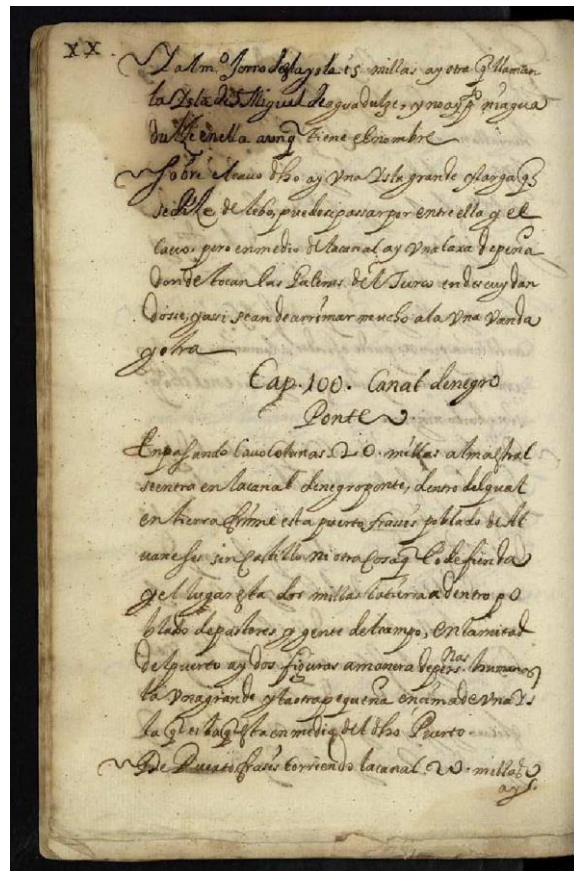 XX.
Y al m.º forro dezlayola 15 millas ay otra q̃ llaman
la Isla de S Miguel de aguadulze, y no ay
dulze en ella aunq̃ tiene el nombre
Sobre el cauo dho ay Vna Isla grande y larga q̃
se dize de lobo, puedese passar por entre ella y el
cauo, pero en medio de la canal ay Vna laxa de peña
donde tocan las Galeras del Turco en descuydan
dosse, y assi sean de arrimar mucho a la Vna Vanda
y otra
Cap. 100. Canal de negro
Ponte
En pasando Cauo Colunas 20 millas al maestral
se entra en la canal de negroponte, dentro del qual
en tierra firme esta puerto frases poblado de Al
uaneses sin Castillo ni otra Cosa q̃ lo defienda
y el lugar esta dos millas la tierra adentro po
blado de pastores y gente del campo, en la mitad
del puerto ay dos figuras a manera de persnas humanas
la Vna grande y la otra pequeña encima de Vna Is
la q̃ esta en medio del dho Puerto
De Puerto frases corriendo la canal 20 millas
ay